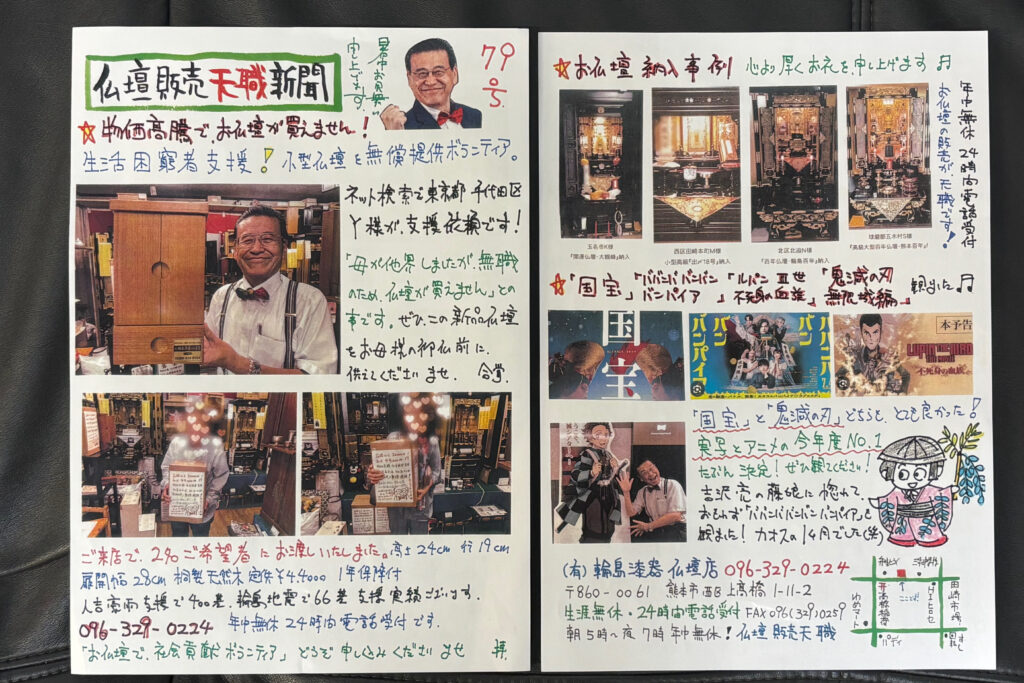 仏壇販売天職新聞
暑中お見舞い
申し上げます
79号
☆物価高騰で、お仏壇が買えません!
生活困窮者支援!小型仏壇を無償提供ボランティア。
ネット検索で東京都千代田区
Y様が、支援依頼です!
「母が他界しましたが、無職
のため、仏壇が買えません」との
事です。ぜひ、この新品仏壇
をお母様の御仏前に、
供えてくださいませ。合掌
ご来店で、2名ご希望者にお渡しいたしました。高さ24cm 行19cm
扉開幅28cm 桐製天然木 定価¥44000 1年保障付
人吉豪雨支援で400基、輪島地震で66基支援実績ございます。
096-329-0224 年中無休24時間電話受付です。
「お仏壇で、社会貢献ボランティア」どうぞ申し込みくださいませ 拝
☆お仏壇納入事例 心より厚くお礼を申し上げます♬
年中無休24時間電話受付
お仏壇の販売が天職です!
玉名市K様
『開運仏壇・大鶴峰』納入
西区田崎本町M様
小型高級『出が18号』納入
北区北迫N様
『百年仏壇・輪島百年』納入
球磨郡五木村S様
『高級大型百年仏壇・熊本百年』
☆「国宝」「ババンババンバンバンパイア」「ルパン三世 不死身の血族」「鬼滅の刃 無限城編」観ました♬
国宝
ババンババンバンバンパイア
本予告
LUPIN THE IIIRD
不死身の血族
「国宝」と「鬼滅の刃」どちらも、とても良かった!
実写とアニメの今年度NO.1
たぶん決定!ぜひ観てください!
吉沢亮の藤娘に惚れて、
おもわず「ババンババンバンバンパイア」も
観ました!カオスの1ヶ月でした(笑)
(有)輪島漆器仏壇店 096-329-0224
〒860-0061 熊本市西区上高橋1-11-2
生涯無休・24時間電話受付 FAX096(329)0259
朝5時〜夜7時 年中無休!仏壇販売天職
ココです
田崎市場
ゆめマート
パディ